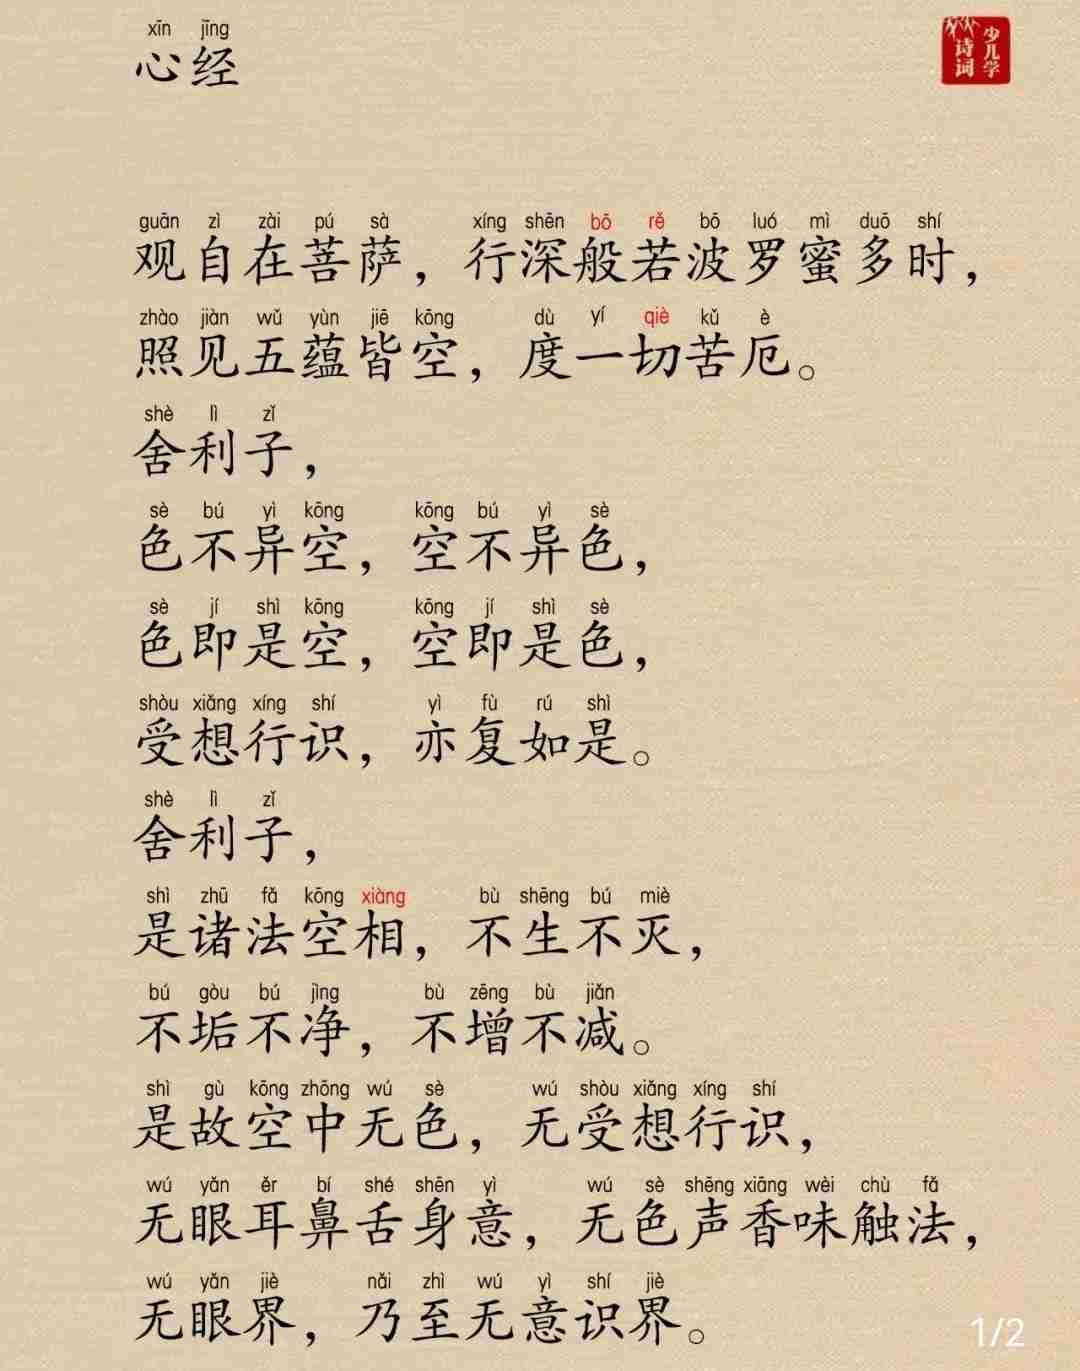 xīn jīng
心经
少儿学
诗词
guān zì zài pú sà xíng shēn bō rě bō luó mì duō shí
观自在菩萨，行深般若波罗蜜多时，
zhào jiàn wǔ yùn jiē kōng dù yí qiè kǔ è
照见五蕴皆空，度一切苦厄。
shè lì zǐ
舍利子，
sè bú yì kōng kōng bú yì sè
色不异空，空不异色，
sè jí shì kōng kōng jí shì sè
色即是空，空即是色，
shòu xiǎng xíng shí yì fù rú shì
受想行识，亦复如是。
shè lì zǐ
舍利子，
shì zhū fǎ kōng xiàng bù shēng bú miè
是诸法空相，不生不灭，
bú gòu bú jìng bù zēng bù jiǎn
不垢不净，不增不减。
shì gù kōng zhōng wú sè wú shòu xiǎng xíng shí
是故空中无色，无受想行识，
wú yǎn ěr bí shé shēn yì wú sè shēng xiāng wèi chù fǎ
无眼耳鼻舌身意，无色声香味触法，
wú yǎn jiè nǎi zhì wú yì shí jiè
无眼界，乃至无意识界。
1/2